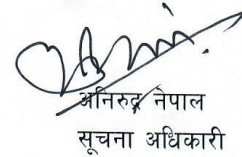 अनिरुद्र नेपाल
सूचना अधिकारी